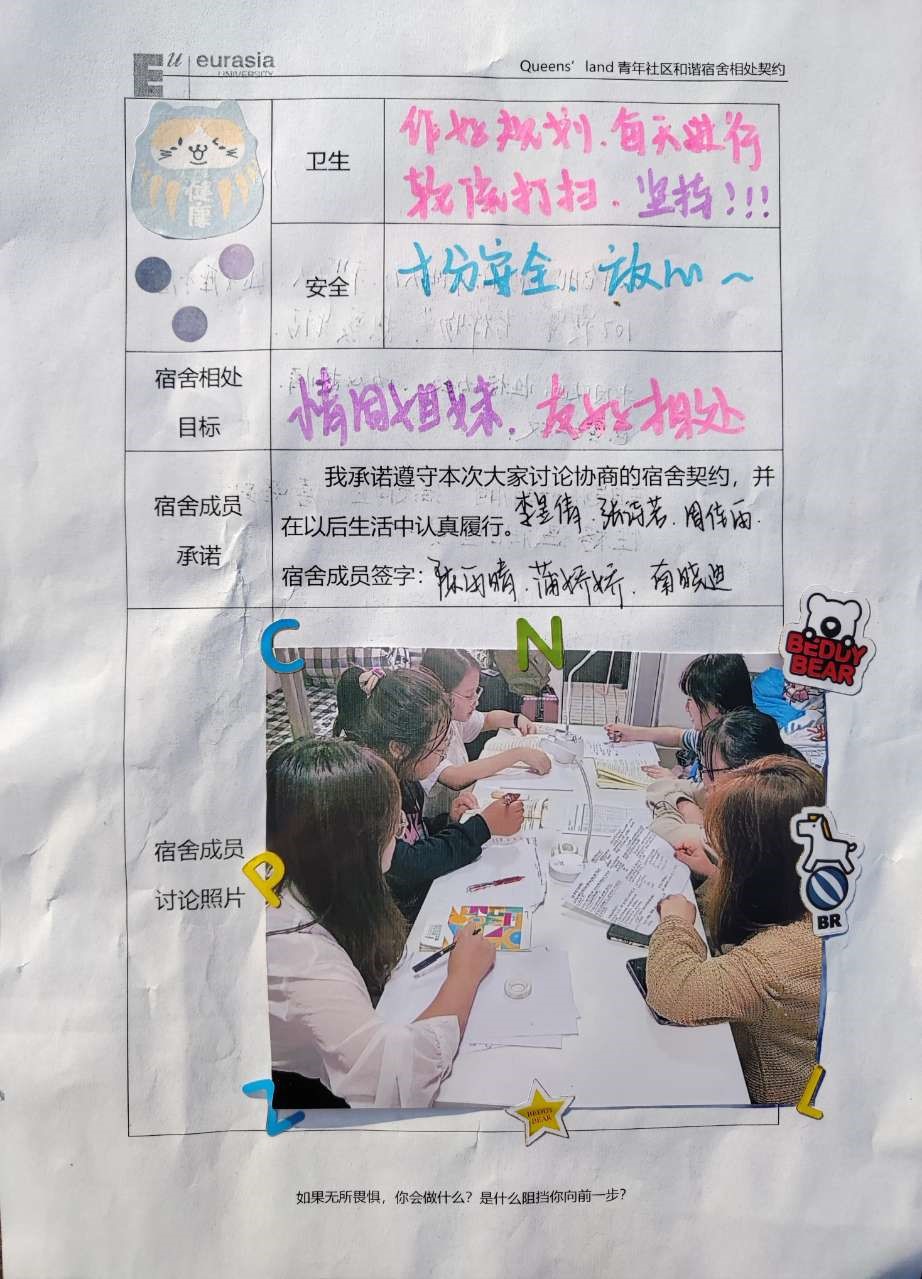 Eu eurasia
UNIVERSITY
Queens’land 青年社区和谐宿舍相处契约
健康
卫生
作好规划、每天进行
轮流打扫、坚持!!!
安全
十分安全、放心~
宿舍相处
目标
情同姐妹、友好相处
宿舍成员
承诺
我承诺遵守本次大家讨论协商的宿舍契约，并
在以后生活中认真履行。李昱倩、张诗若、周佳雨、
宿舍成员签字：张雨晴、蒲娇娇、南晓迪
C
N
BEDDY
BEAR
宿舍成员
讨论照片
P
BR
Z
BEDDY
BEAR
L
如果无所畏惧，你会做什么？是什么阻挡你向前一步？